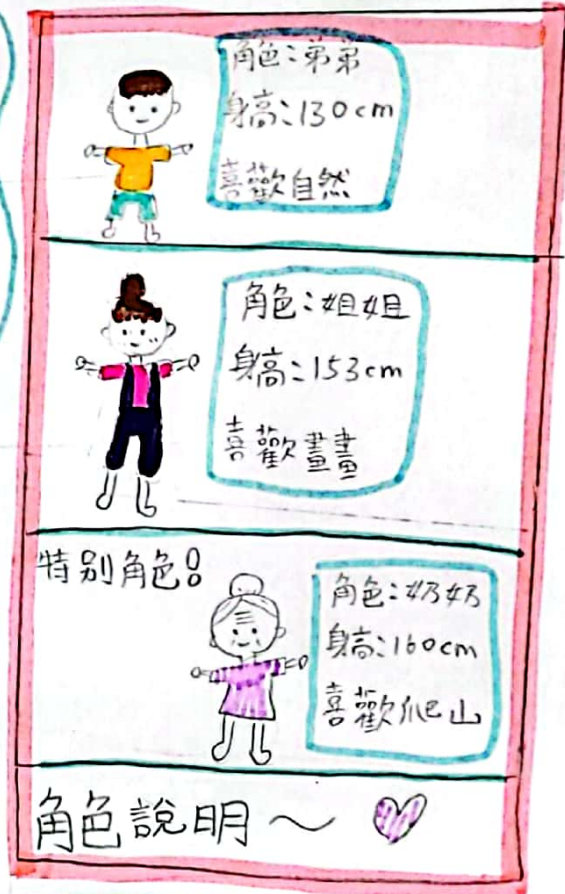 角色：弟弟
身高：130cm
喜歡自然
角色：姐姐
身高：153cm
喜歡畫畫
特別角色！
角色：奶奶
身高：160cm
喜歡爬山
角色說明～